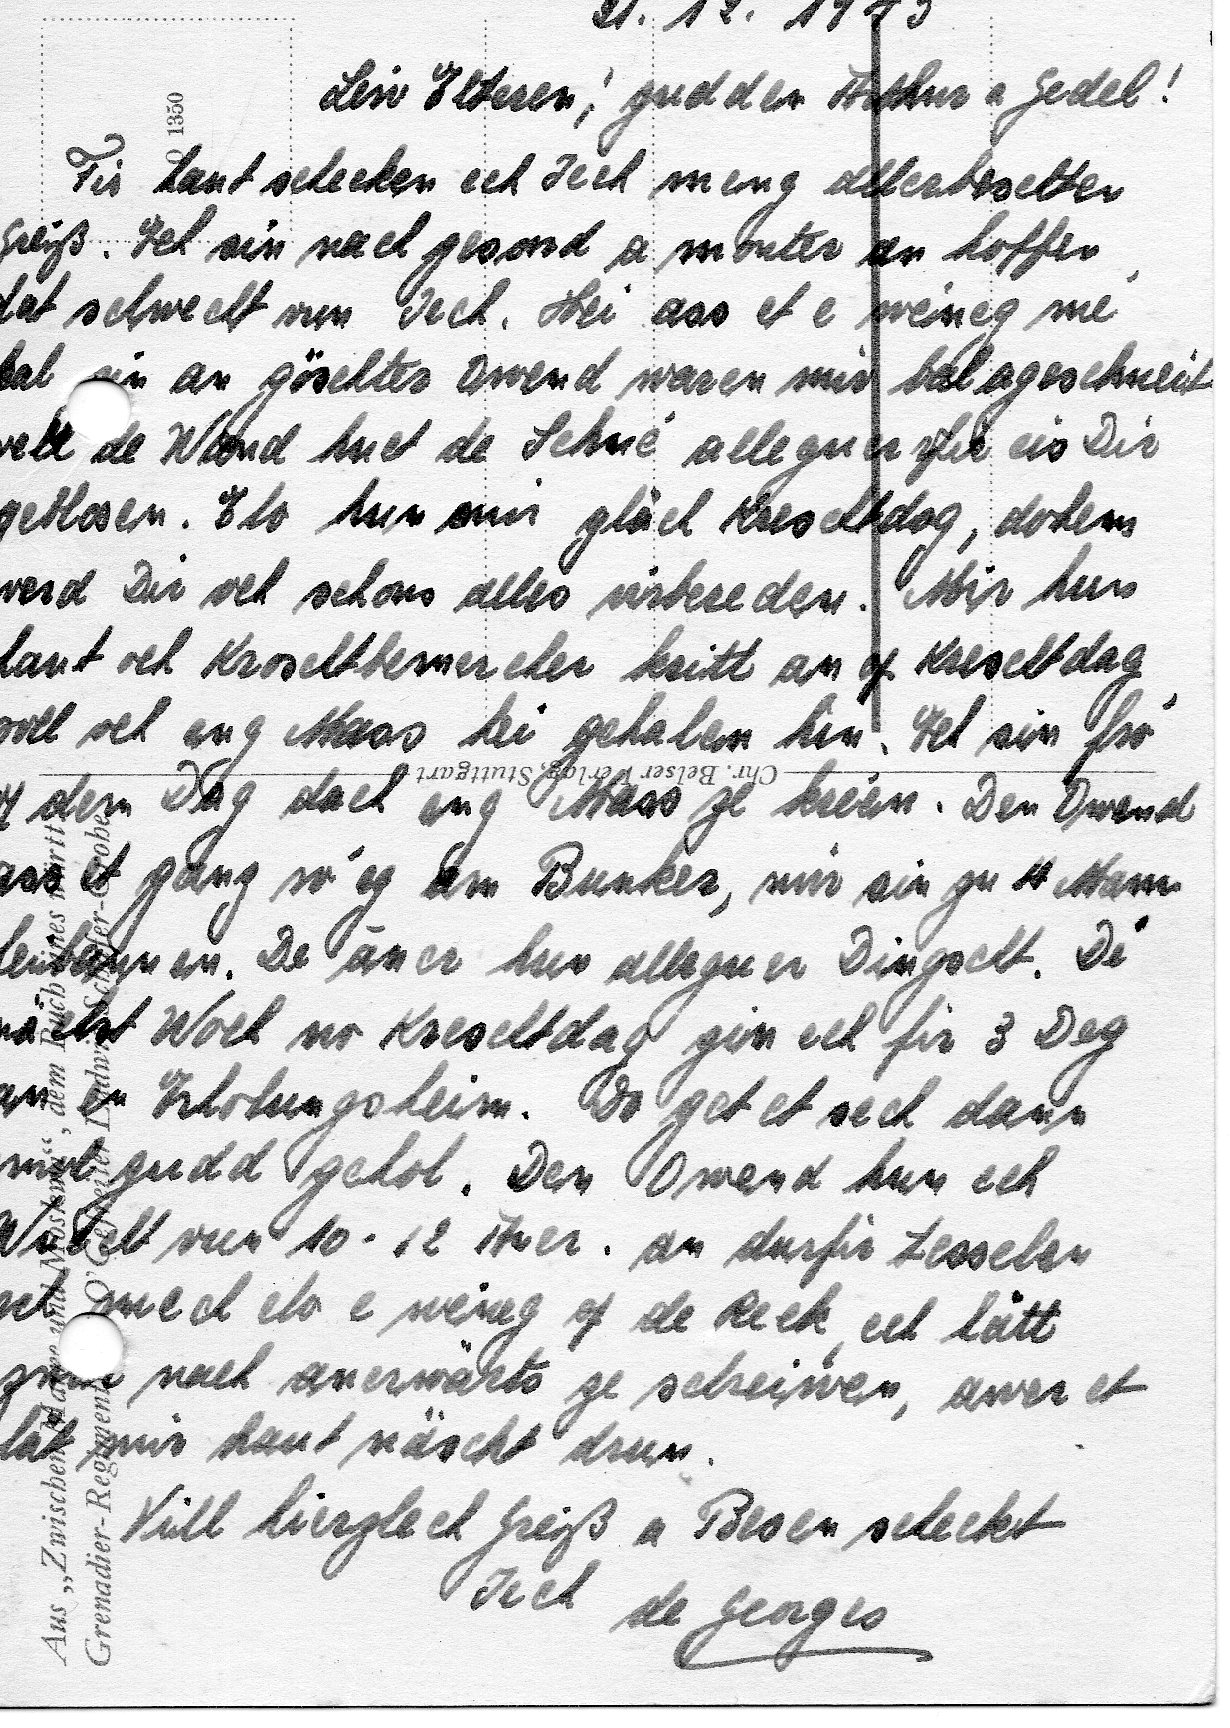 21. 12. 1943
Leiv Elteren, gudden Arthur a Gedel!
Fir haut schecken ech Iech meng allerbeschten
Greiß. Ech sin nach gesond a monter an hoffen
dat selwecht vun Iech. Hei ass et e wéineg mé
kal an göschter Owend waren mir bal ageschneit
well de Wand huet de Schné alleguer fir eis Dir
geblosen. Elo hun mir gläch Kreschtdag, dohem
werd Dir och schons alles virbereden. Mir hun
haut och Kroschtbemercher kritt an of Kreschtdag
soll och eng Mass hei gehalen hin. Ech sin fro'
of dem Dag dach eng Mass ze kréien. Den Owend
ass et gang ro'eg am Bunker, mir sin zu 4 Mann
De äner hun alleguer Dingscht. Dé
nächst Woch no Kreschtdag gin ech fir 3 Deg
an en Erholungsheim. Do get et sech dann
mol gudd gehol. Den Owend hun ech
Wuecht vun 10 - 12 Auer. an durfir
ech mech elo e wéineg of de Reck, ech hätt
zwar nach anerwärts ze schreiwen, awer et
läit mir haut näscht drun.
Vill hierzlech Greiß a Besen scheckt
Iech de Georges
O 1350
Chr. Belser Verlag, Stuttgart
Aus „Zwischen Marne und Moskwa“, dem Buch eines württ.
Grenadier-Regiments